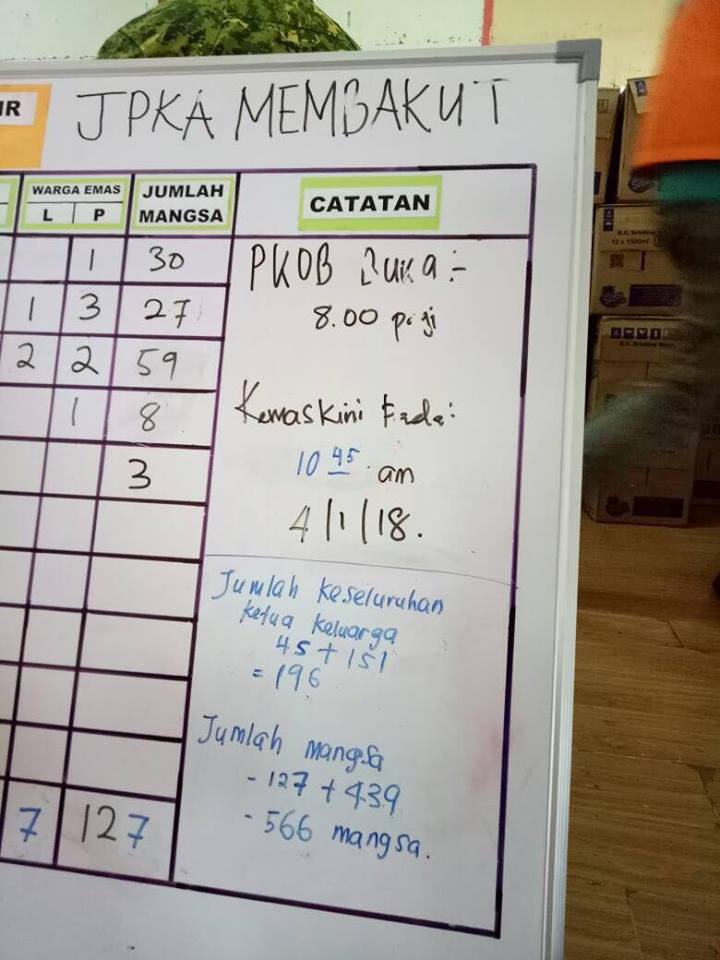 JPKA MEMBAKUT
WARGA EMAS JUMLAH MANGSA CATATAN
L P
1 30
1 3 27
2 2 59
1 8
3
7 127
PKOB Buka :-
8.00 pagi
Kemaskini Pada:
10 45 am
4/1/18.
Jumlah keseluruhan
ketua keluarga
45 + 151
= 196
Jumlah mangsa
- 127 + 439
- 566 mangsa.
12 x 1500ml